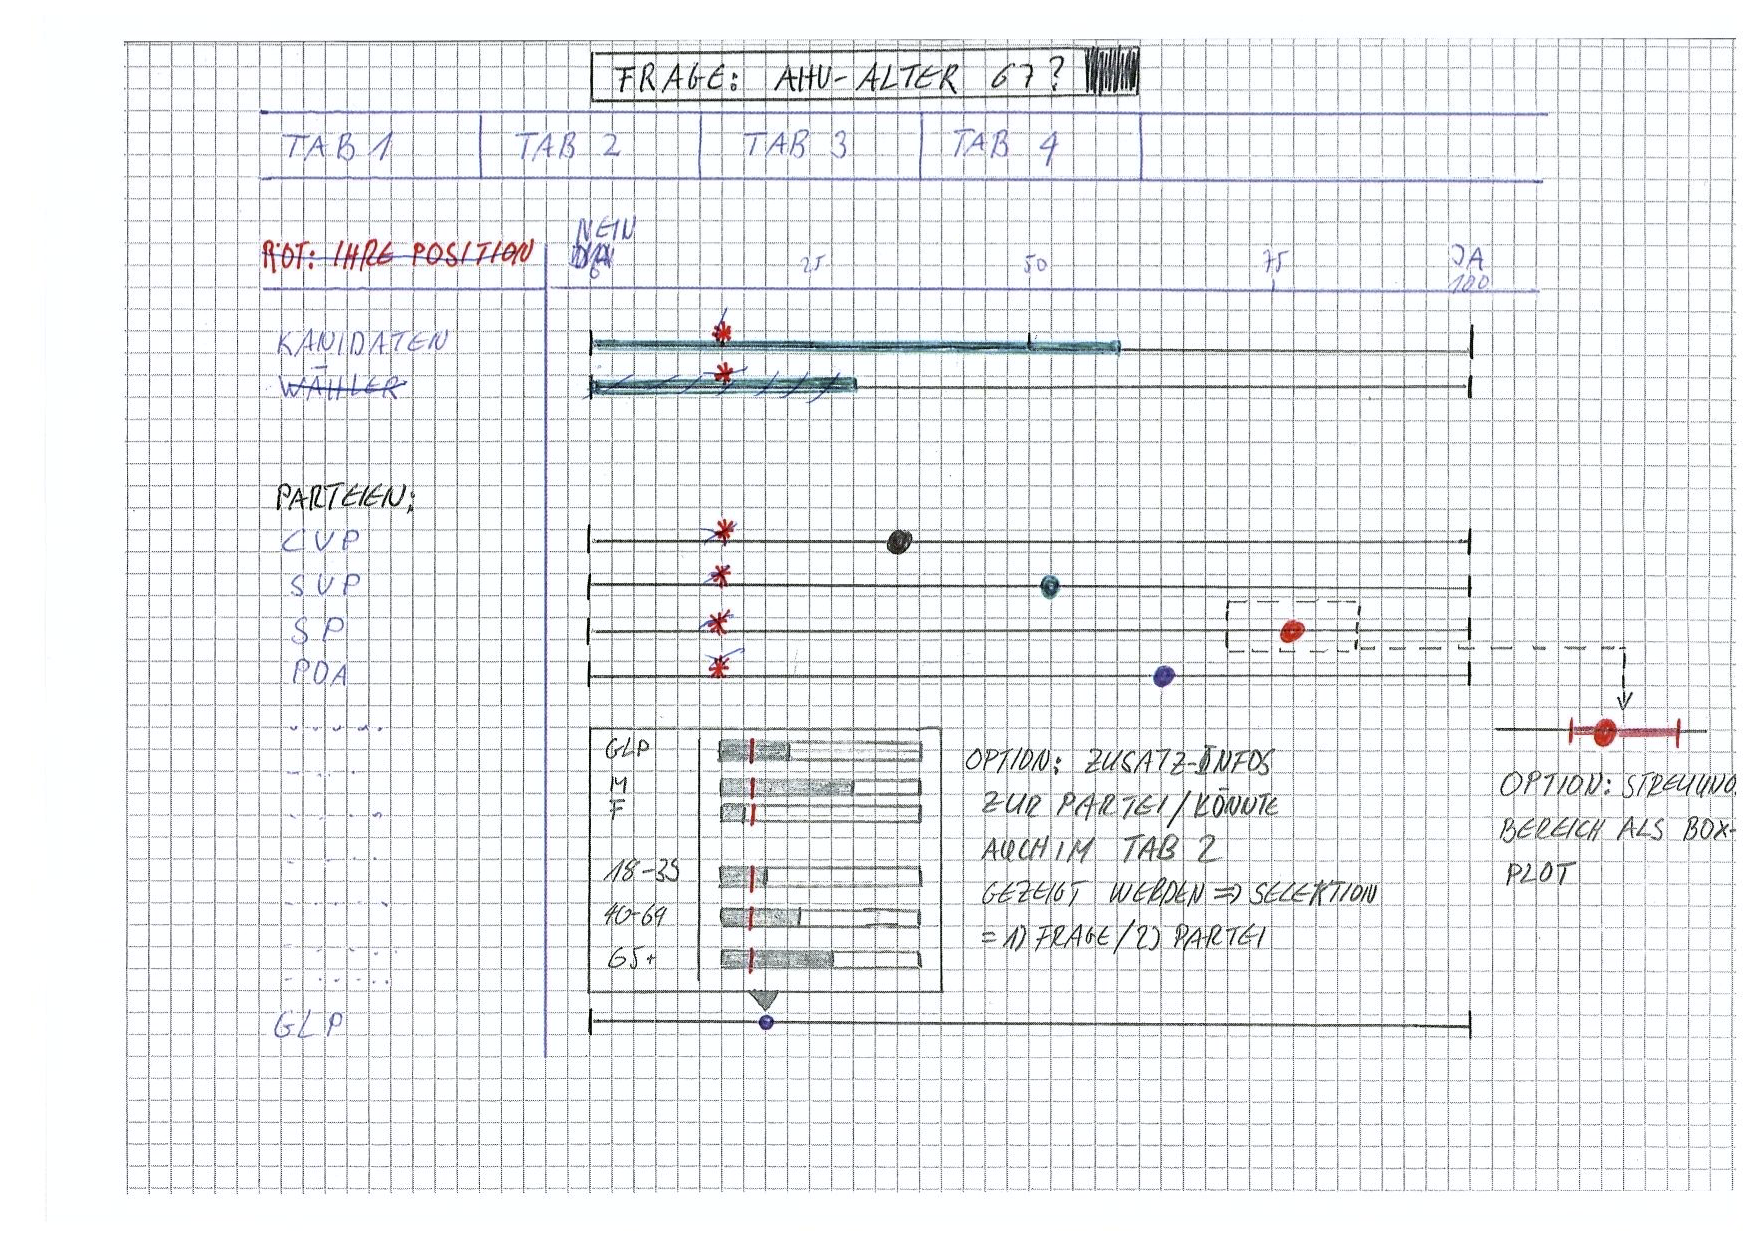 FRAGE: AHU-ALTER 67?
TAB 1 TAB 2 TAB 3 TAB 4
NEIN
ROT: IHRE POSITION
0 25 50 75 JA
100
KANIDATEN
WÄHLER
PARTEIEN:
CVP
SVP
SP
PDA
GLP
M
F
18-39
40-64
65+
OPTION: ZUSATZ-INFOS
ZUR PARTEI/KÖNNTE
AUCH IM TAB 2
GEZEIGT WERDEN => SELEKTION
= 1) FRAGE/2) PARTEI
OPTION: STREUUNG
BEREICH ALS BOX-
PLOT
GLP